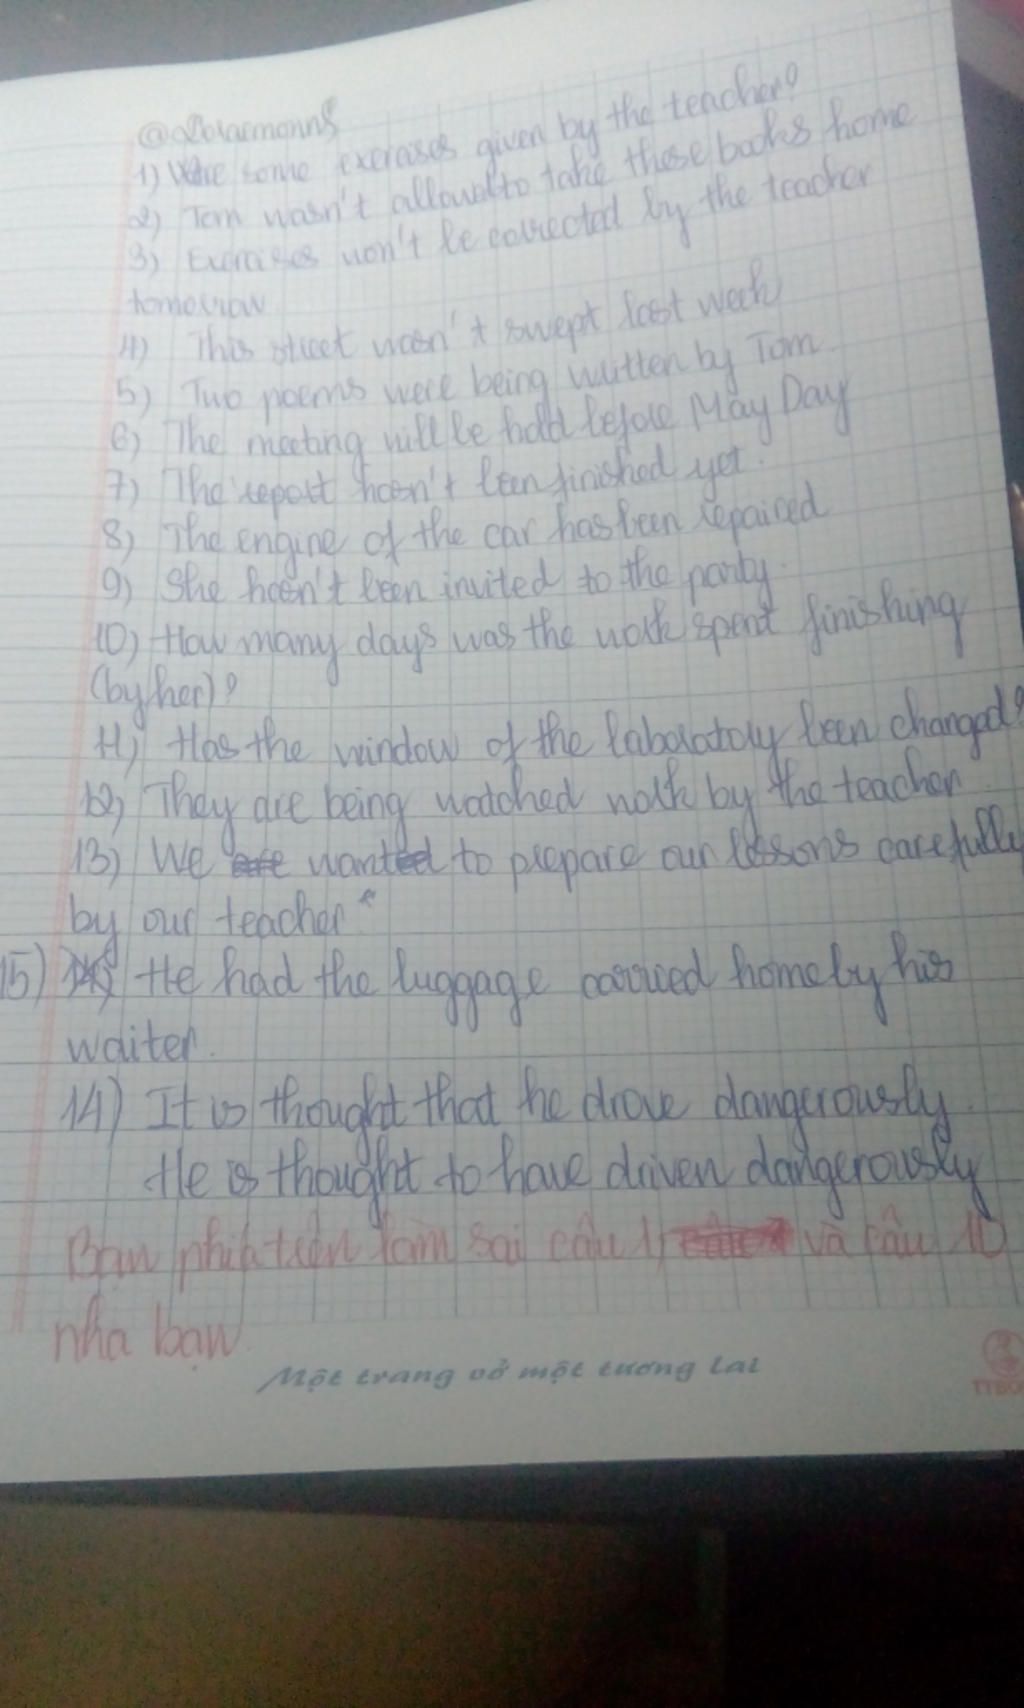 1) Were some exercises given by the teacher?
2) Tom wasn't allowed to take these books home
3) Exercises won't be corrected by the teacher
tomorrow
4) This street wasn't swept last week
5) Two poems were being written by Tom.
6) The meeting will be hold before May Day
7) The report hasn't been finished yet.
8) The engine of the car has been repaired
9) She hasn't been invited to the party.
10) How many days was the work spent finishing
(by her)?
11) Has the window of the laboratory been changed?
12) They are being watched work by the teacher.
13) We wanted to prepare our lessons carefully
by our teacher
15) He had the luggage carried home by his
waiter.
14) It is thought that he drove dangerously.
He is thought to have driven dangerously
Bạn phía trên làm sai câu 1, và câu 10
nha bạn.
Một trang vở một tương lai